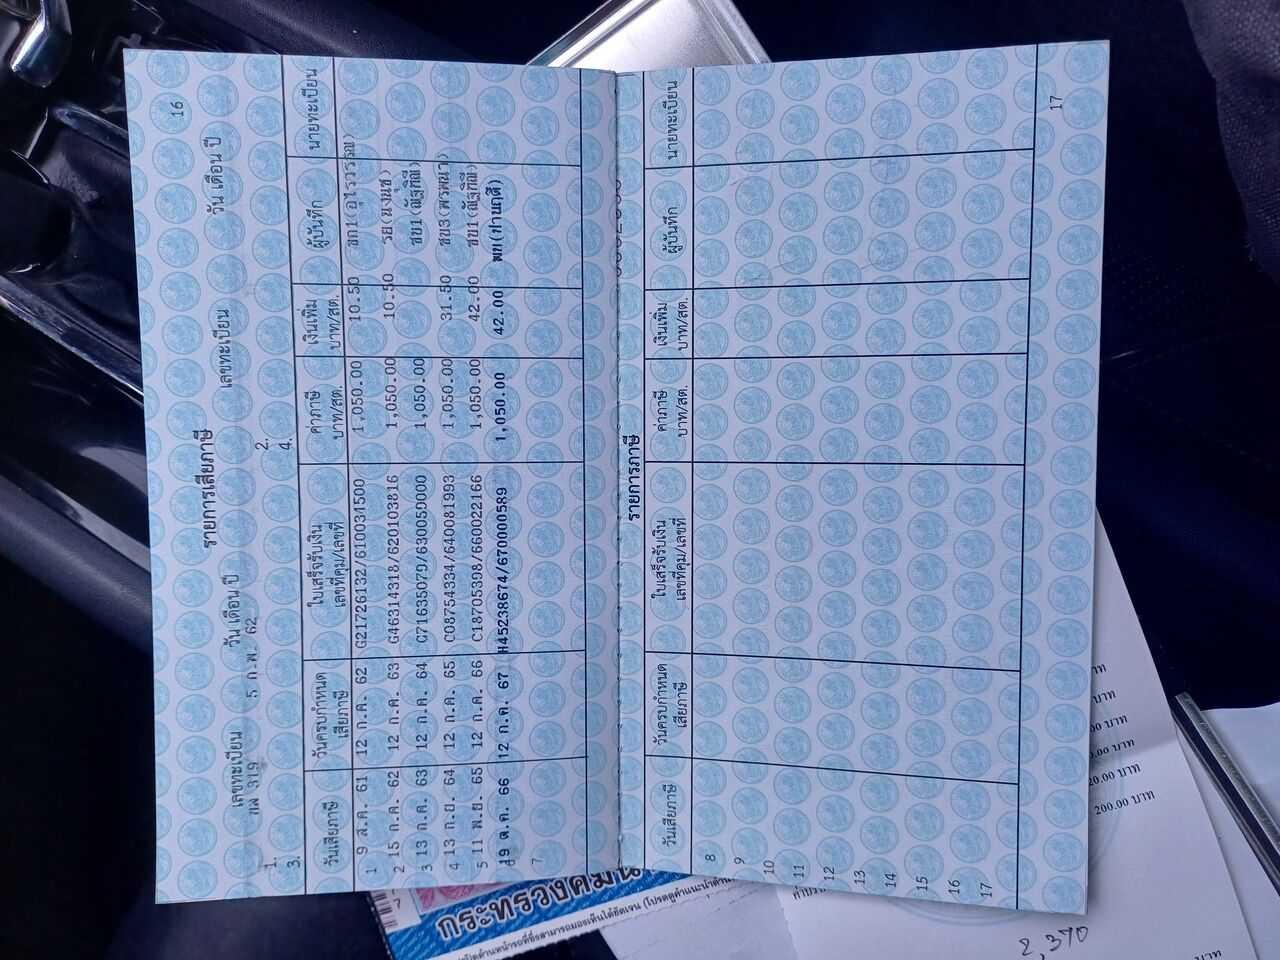 16
รายการเสียภาษี
เลขทะเบียน วัน เดือน ปี เลขทะเบียน วัน เดือน ปี
1. 319 5 ก.พ. 62 2.
3. 4.
วันเสียภาษี วันครบกำหนดเสียภาษี ใบเสร็จรับเงิน เลขที่คุม/เลขที่ ค่าภาษี บาท/สต. เงินเพิ่ม บาท/สต. ผู้บันทึก นายทะเบียน
1 9 ส.ค. 61 12 ก.ค. 62 G21726132/61003/1500 1,050.00 10.50 ชก1(อุไรวรรณ)
2 15 ก.ค. 62 12 ก.ค. 63 G46314318/620103816 1,050.00 10.50 รย(นงนุช)
3 13 ก.ค. 63 12 ก.ค. 64 G71635079/630059000 1,050.00 ชบ1(ณัฐกิณี)
4 13 ก.ย. 64 12 ก.ค. 65 C08754334/640081993 1,050.00 31.50 ชบ3(พรพนา)
5 11 พ.ย. 65 12 ก.ค. 66 C18705398/660022166 1,050.00 42.00 ชบ1(ณัฐกิณี)
19 ต.ค. 66 12 ก.ค. 67 H45238674/670000589 1,050.00 42.00 พย(ปานฤดี)
7
รายการภาษี
วันเสียภาษี วันครบกำหนดเสียภาษี ใบเสร็จรับเงิน เลขที่คุม/เลขที่ ค่าภาษี บาท/สต. เงินเพิ่ม บาท/สต. ผู้บันทึก นายทะเบียน
8
9
10
11
12
13
14
15
16
17
17
กระทรวงคมนา
บาท
บาท
00 บาท
.00 บาท
20.00 บาท
200.00 บาท
2,370
บาท